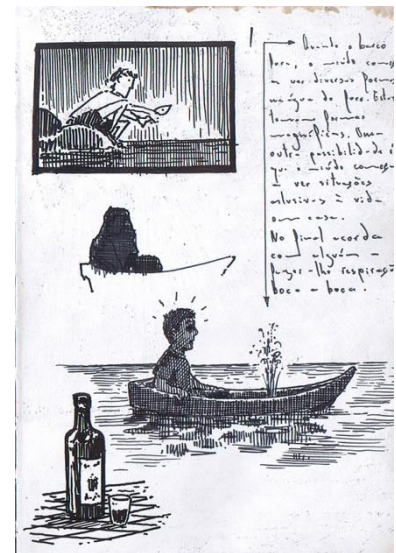 Quando o barco
fura, o miúdo começa
a ver diversas formas
na água do furo. Estas
tomam formas
magníficas. Uma
outra possibilidade é
que o miúdo começa
a ver situações
alusivas à vida
em casa.
No final acorda
com alguém a
fazer-lhe respiração
boca a boca.